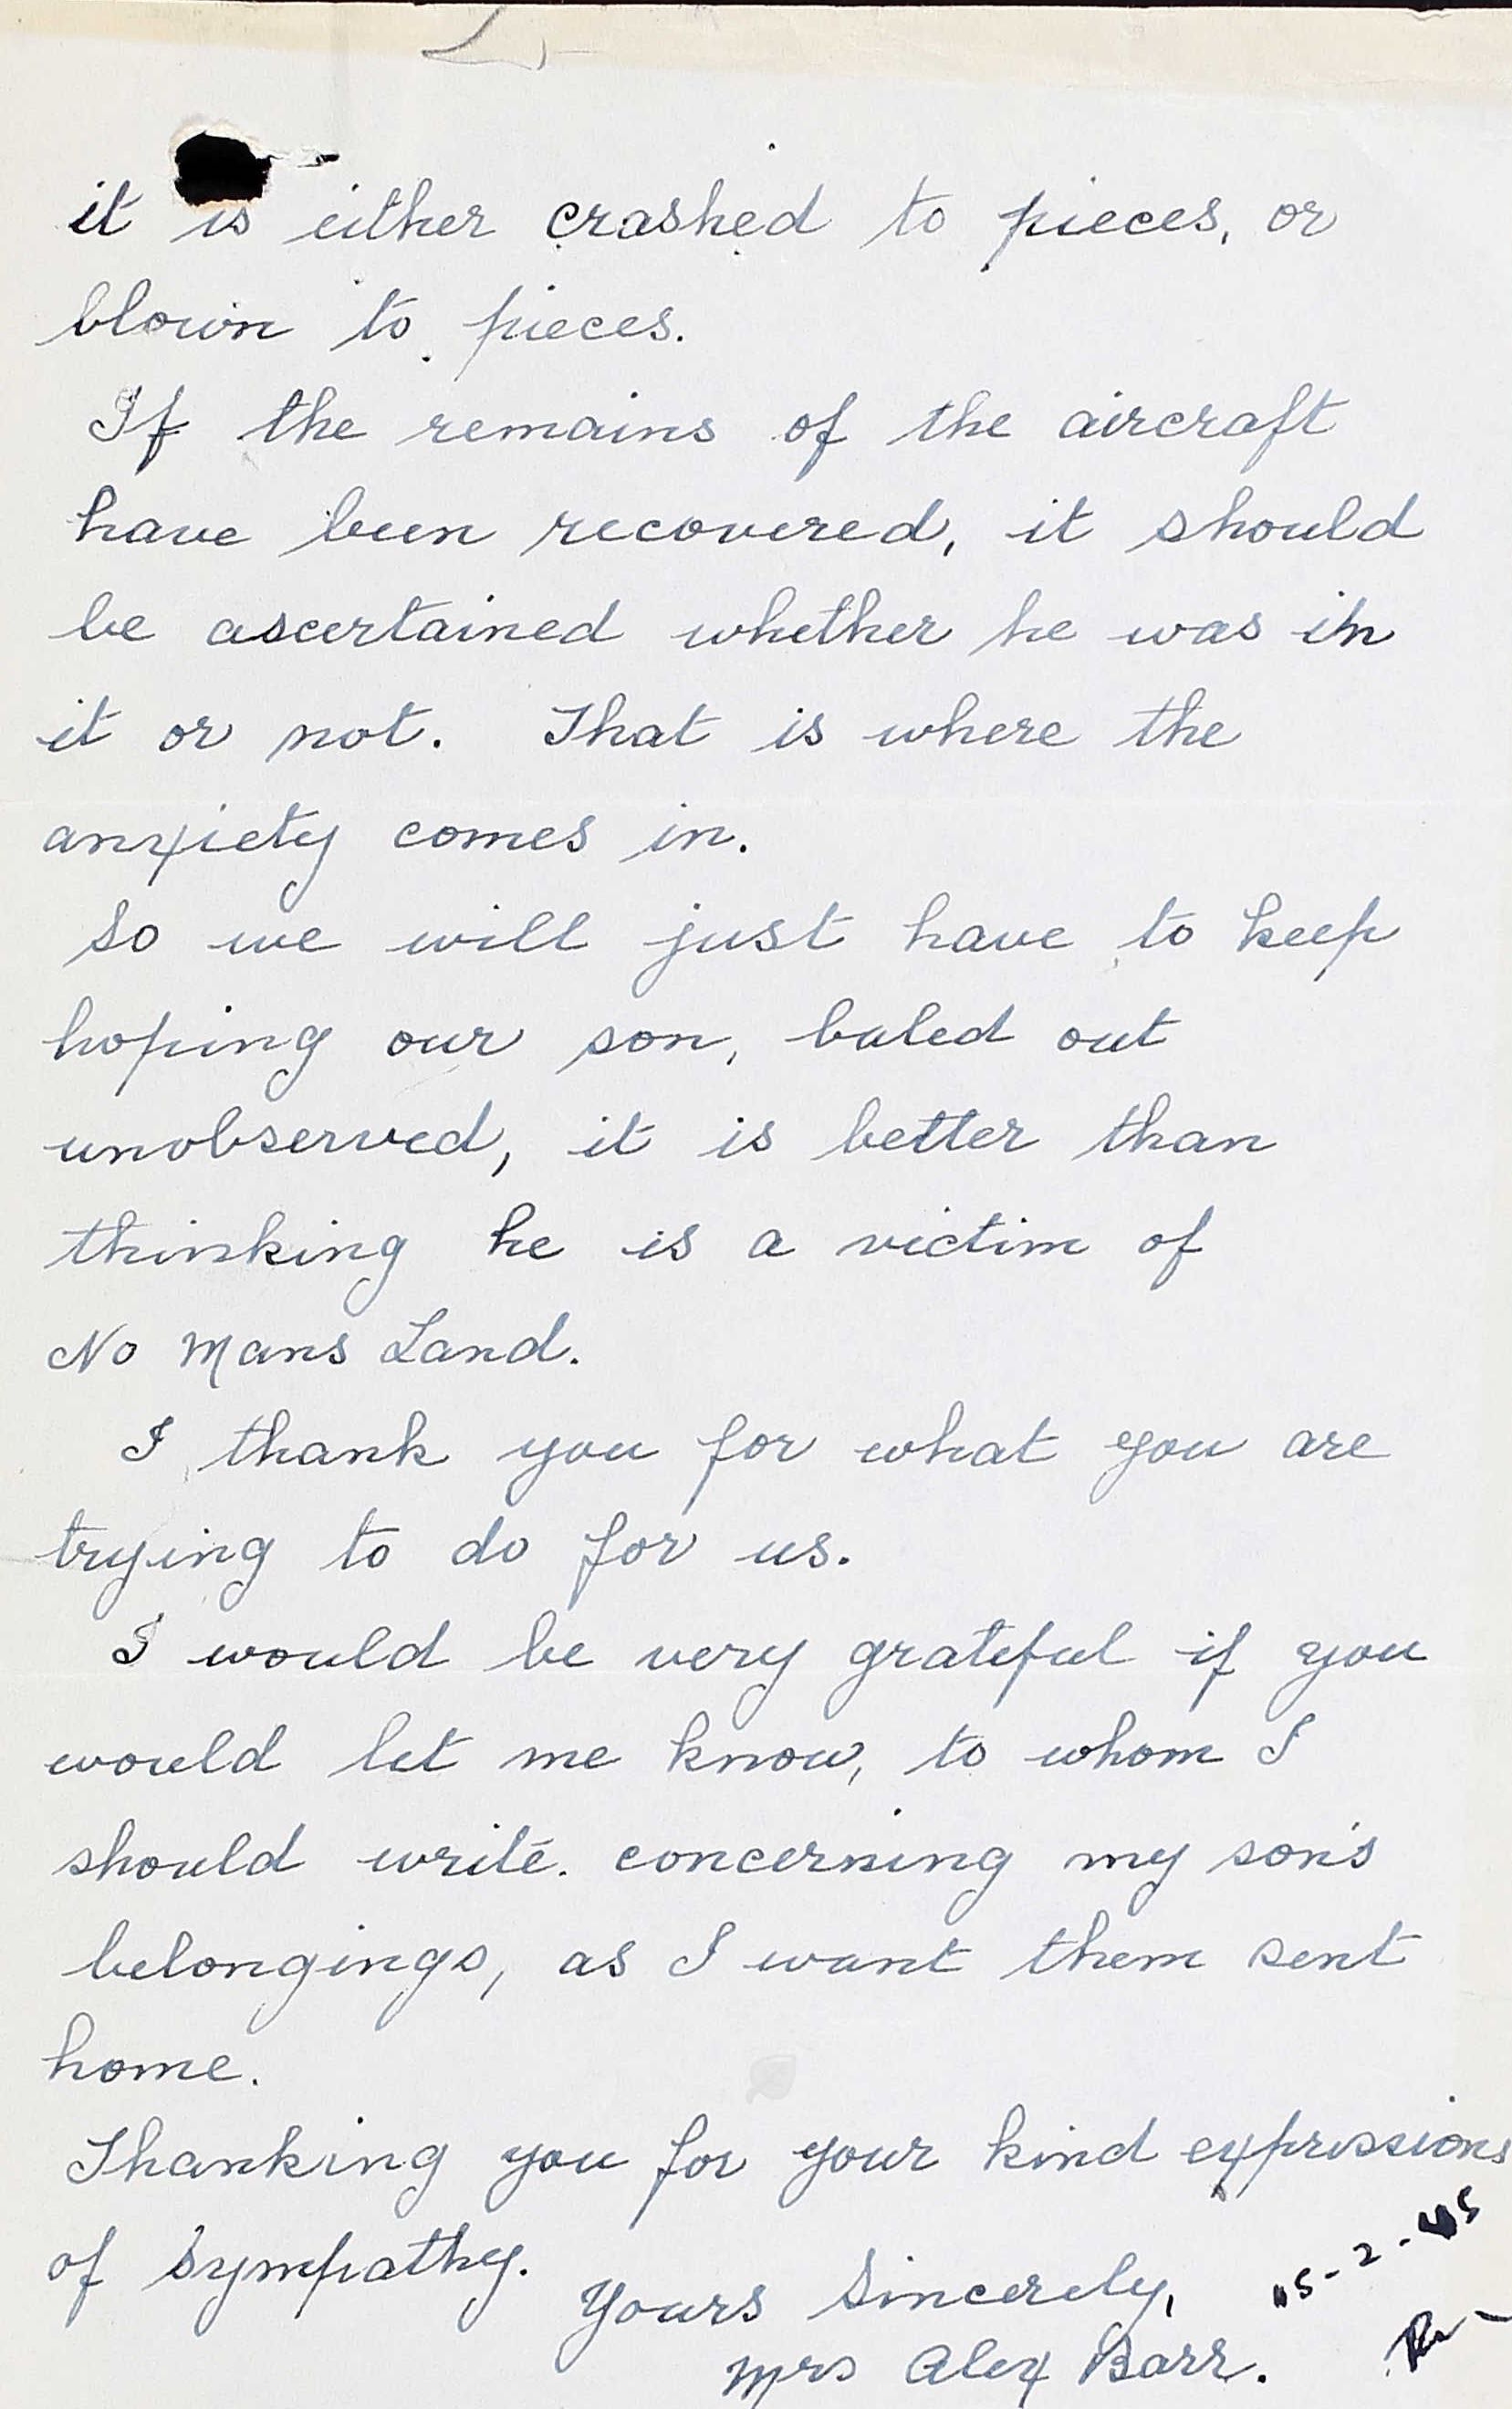 it is either crashed to pieces, or
blown to pieces.
If the remains of the aircraft
have been recovered, it should
be ascertained whether he was in
it or not. That is where the
anxiety comes in.
So we will just have to keep
hoping our son, baled out
unobserved, it is better than
thinking he is a victim of
No Mans Land.
I thank you for what you are
trying to do for us.
I would be very grateful if you
would let me know, to whom I
should write. concerning my son's
belongings, as I want them sent
home.
Thanking you for your kind expressions
of sympathy.
Yours Sincerely,
Mrs Alex Barr.